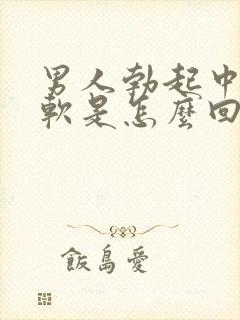 男人勃起中
軟是怎麼回
飯島愛